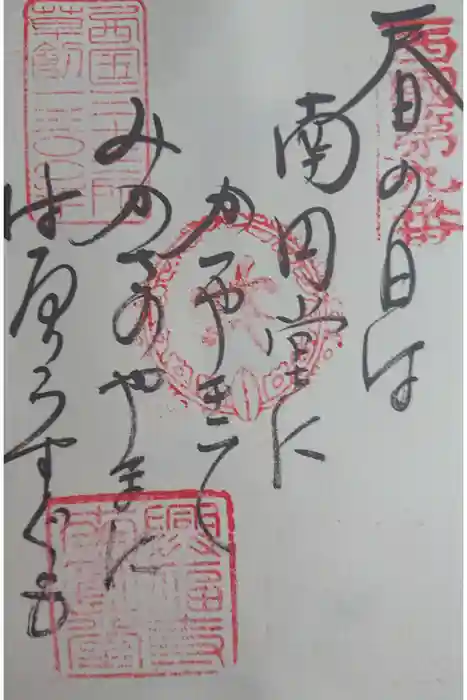 西国第九番
春の日は
南円堂に
かゞやきて
みかさのやまに
はるゝうすぐも
西国三十三所
草創一三〇〇年